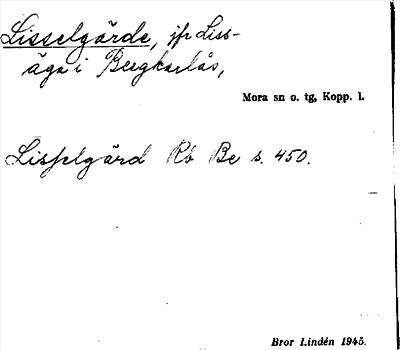 Lisselgärde, jfr Liss-
äga i Bergkarlås,
Mora sn o. tg, Kopp. l.
Lisselgärd Rb Be s. 450.
Bror Lindén 1945.